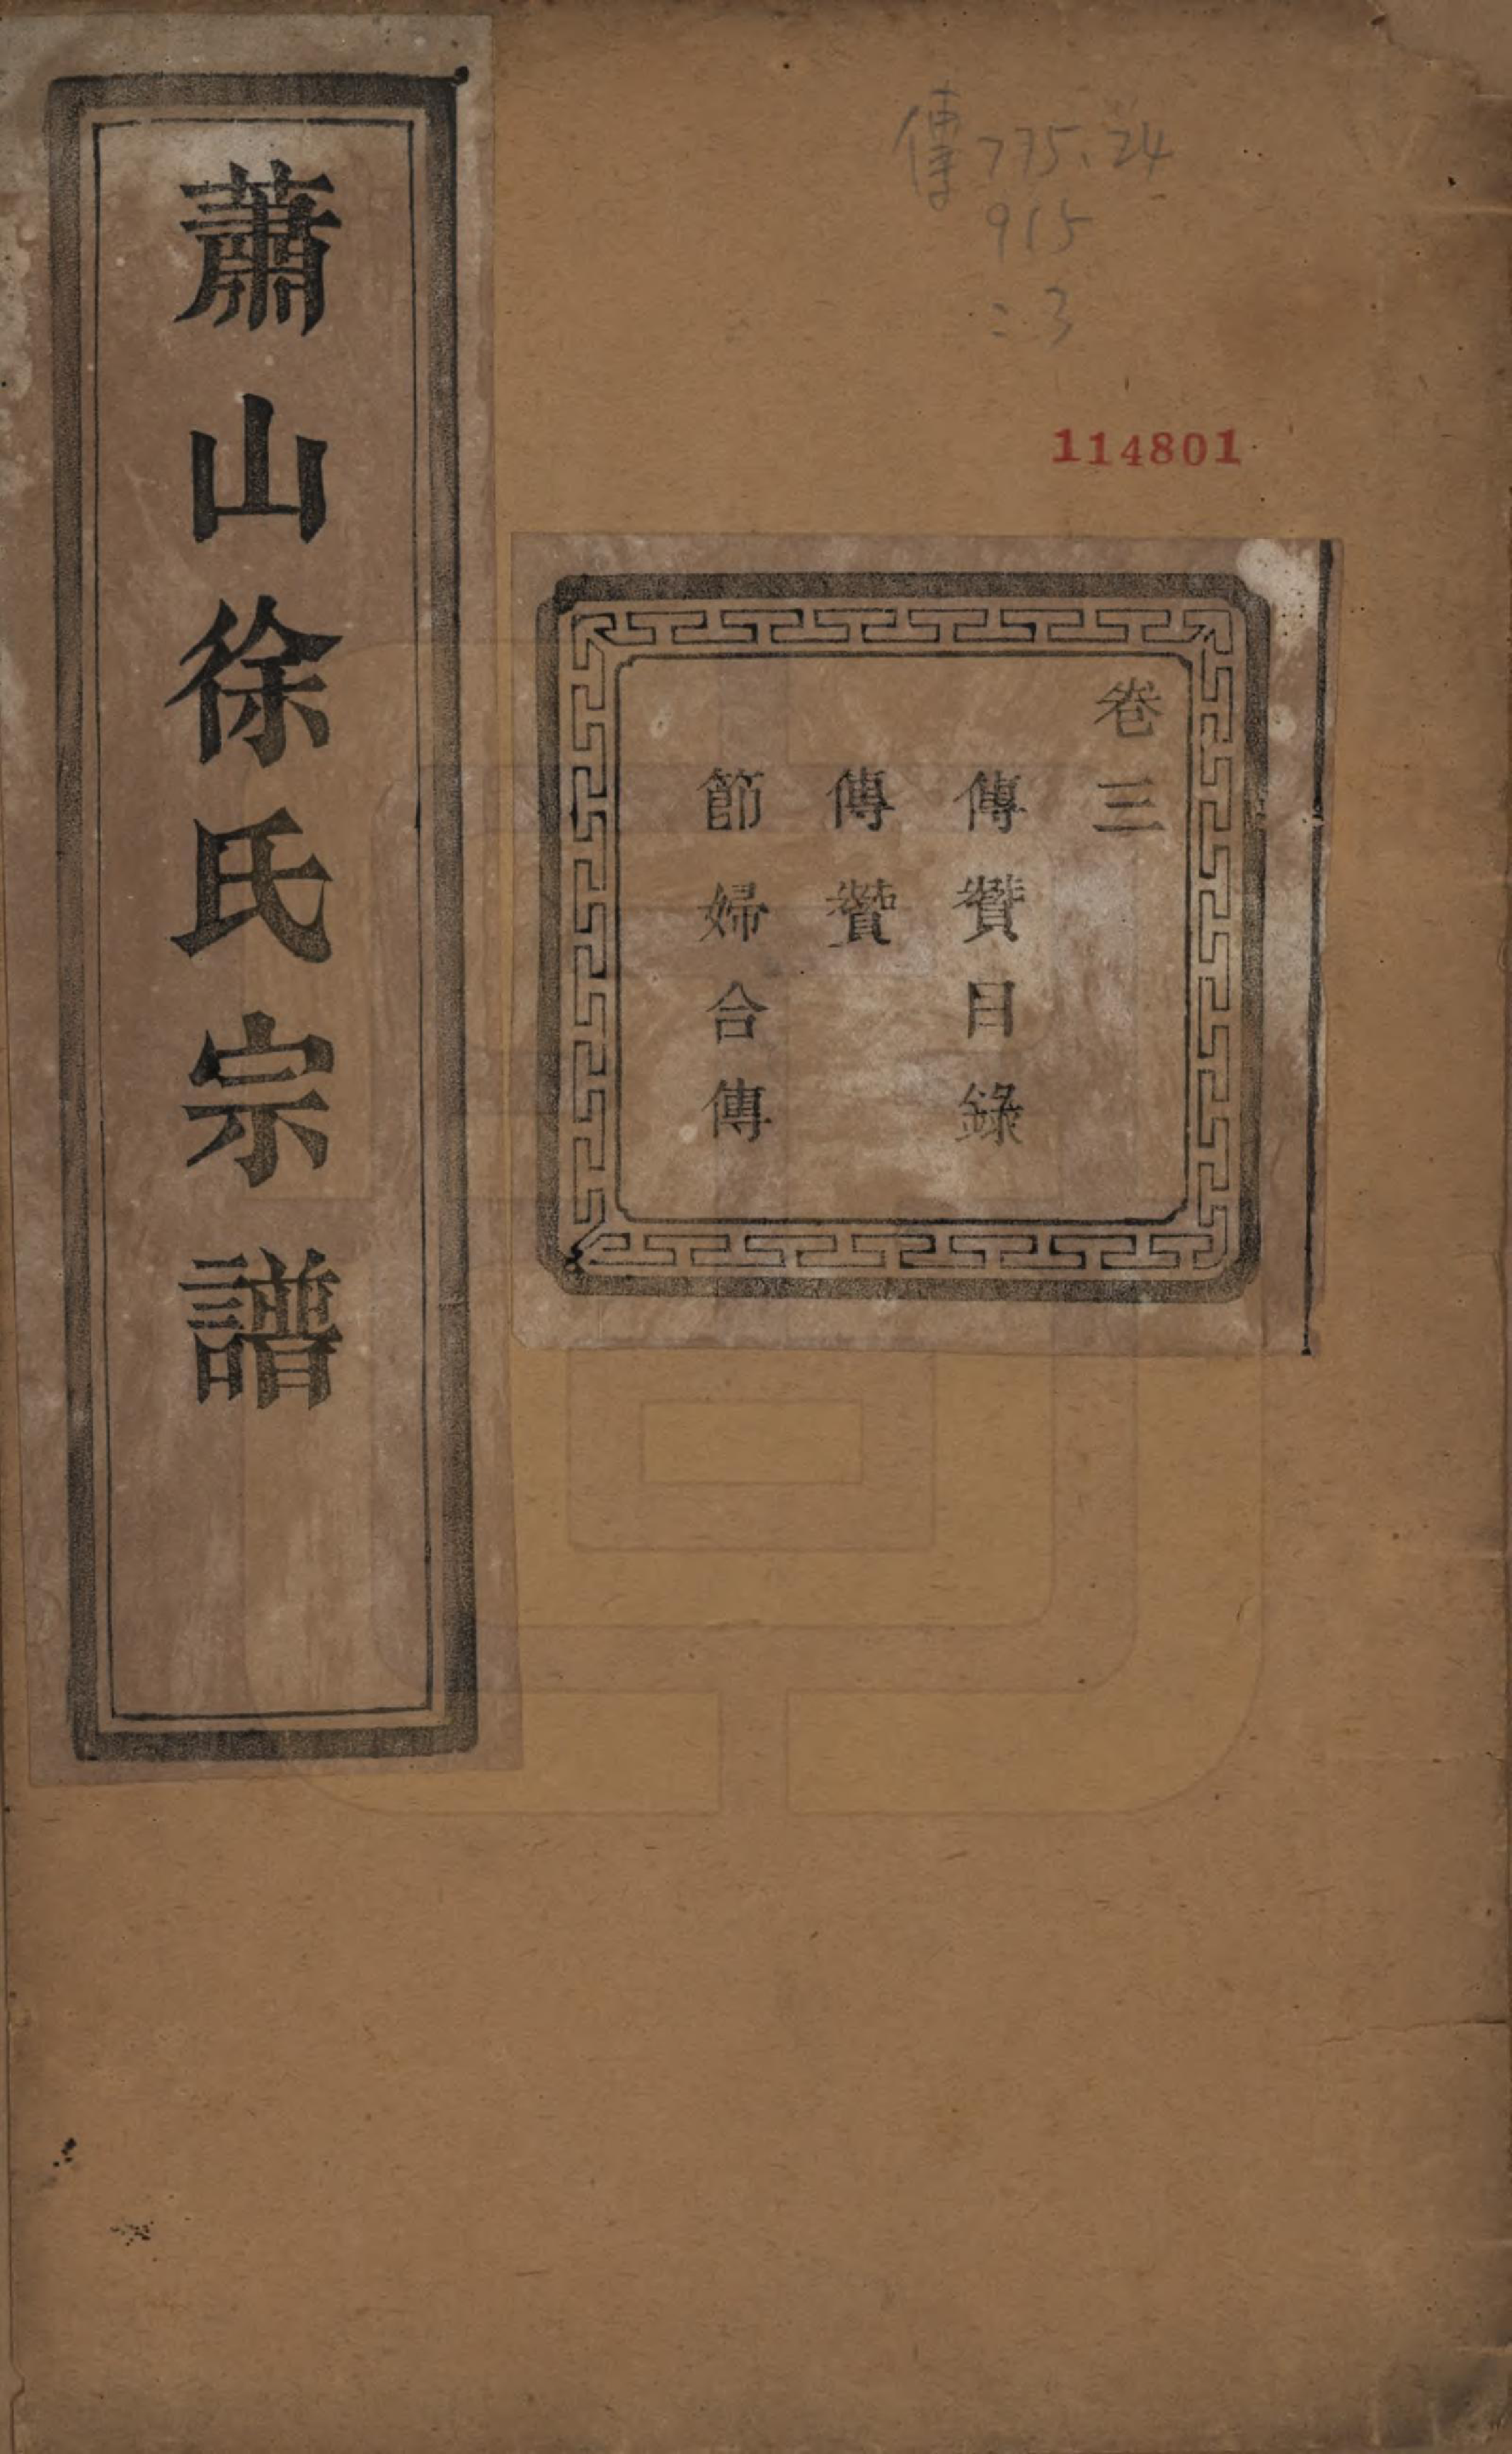 蕭山徐氏宗譜
傳775.24
915
:3
114801
卷三
傳贊目錄
傳贊
節婦合傳